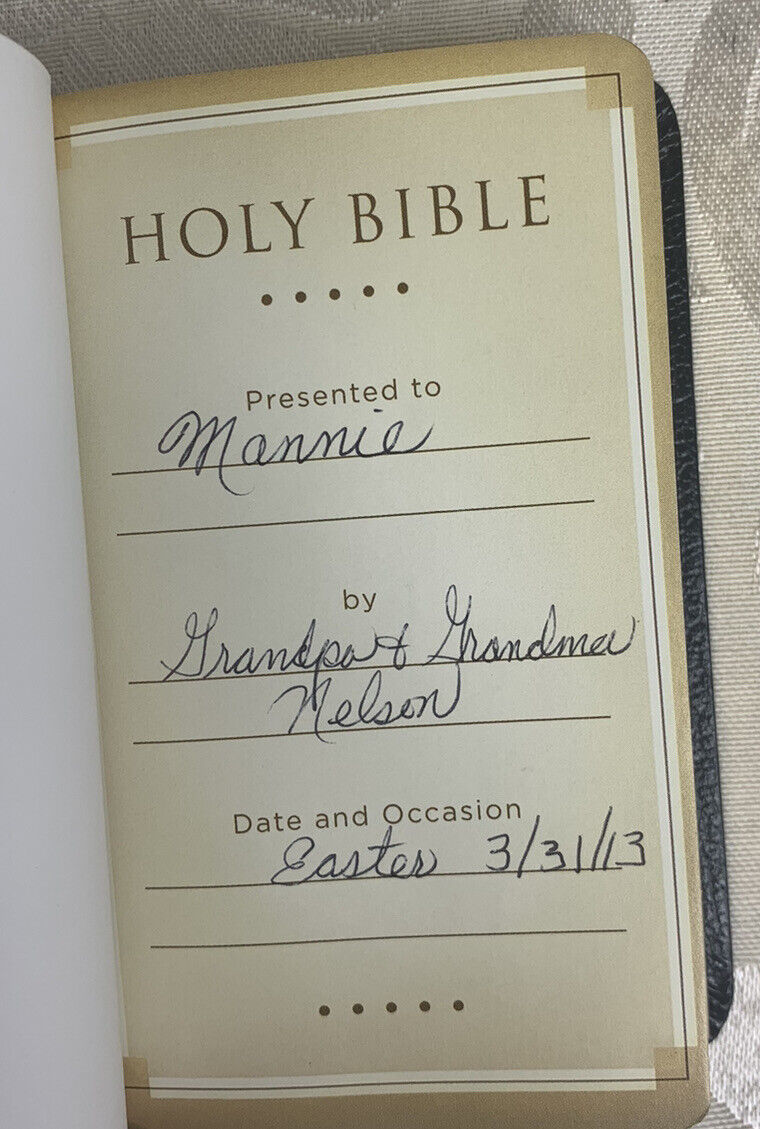 HOLY BIBLE
Presented to
Mannie
by
Grandpa & Grandma
Nelson
Date and Occasion
Easter 3/31/13